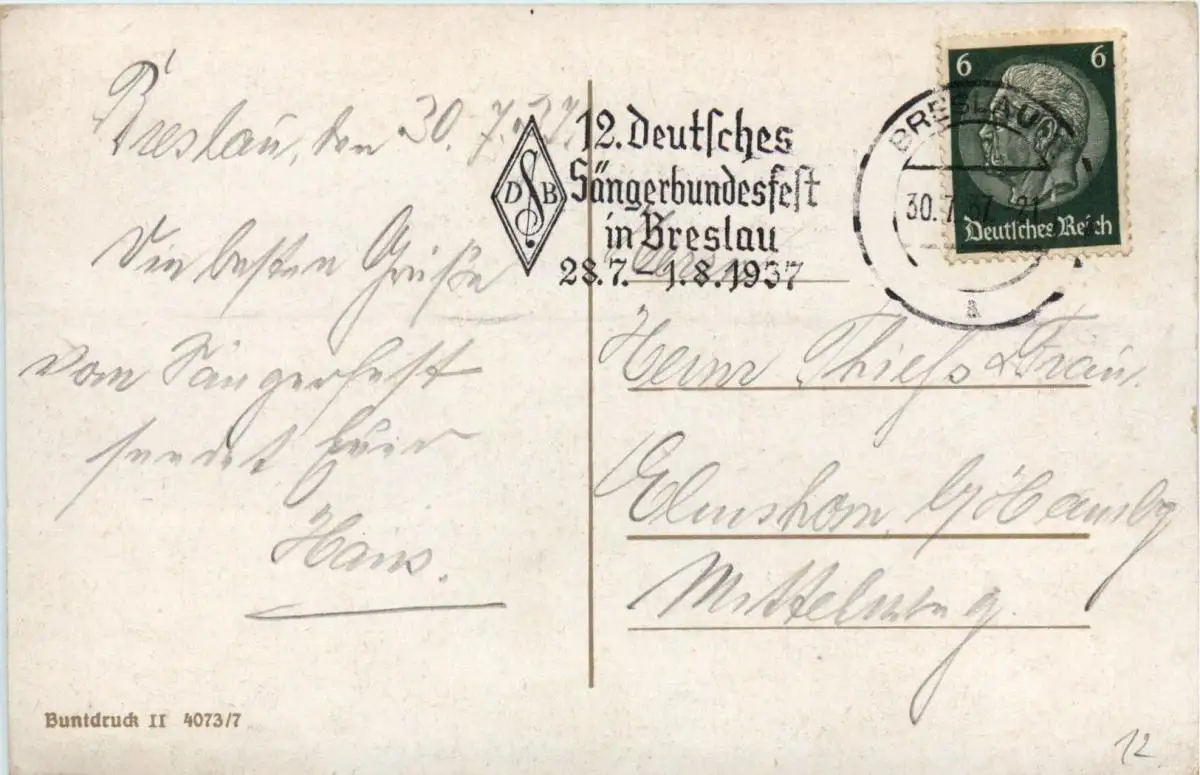 Breslau, den 30.7.37.
Die besten Grüße
vom Sängerfest
sendet Euer
Hans.
Buntdruck II 4073/7
DSB
12. Deutsches
Sängerbundesfest
in Breslau
28.7. – 1.8.1937
BRESLAU
30.7.37. 21
a
6 6
Deutsches Reich
Heinr Thieß & Frau.
Elmshorn b/Hambg
Mittelweg.
12